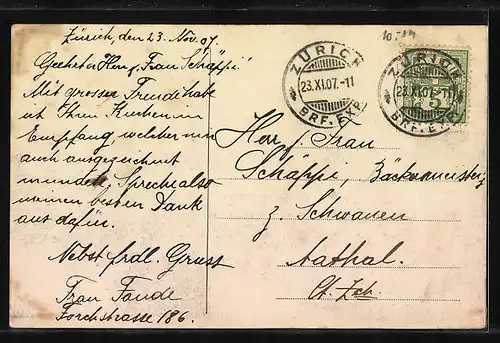 Zürich, den 23. Nov. 07.
Geehrter Herr & Frau Schäppi!
Mit grosser Freude habe
ich Ihren Kuchen in
Empfang, welcher uns
auch ausgezeichnet
mundete, Spreche also
meinen besten Dank
aus dafür.
Nebst frdl. Gruss
Frau
Forchstrasse 186.
10-14
ZÜRICH
23.XI.07.-11
BRF. EXP.
ZÜRICH
23.XI.07.-11
BRF. EXP.
5
Herr & Frau
Schäppi, Bäckermeister
z. Schwanen
Aathal.
Ct. Zch.